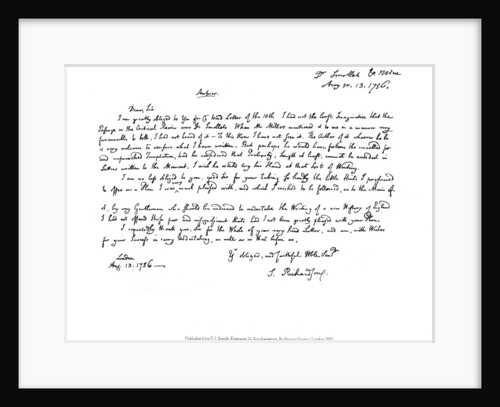 Dr Smollett
Aug 13. 1756.
Answer.
Dear Sir
I am greatly obliged to You for Yr kind Letter of the 10th I had not the least Imagination that the
Passage in the Critical Review was Dr Smollet's. When Mr Millar mentioned it to me in a manner very
favourable to both, I had not heard of it - To this Hour I have not seen it. The Author of it whoever he be
is very welcome to censure what I have written. But perhaps he would have forborn the uncalled for
and unprovoked, had he considered that Prolixity, Length at least, cannot be avoided in
Letters written to the Moment, I wish he would try his Hand at that Sort of Writing.
I am no less obliged to you, good Sir for your taking so kindly the little Hints I presumed
to offer on a Plan I was very much pleased with, and which I wished to be followed, as to the Main of
it, by any Gentleman who should be induced to undertake the Writing of a new History of England
I had not offered those few and insignificant Hints had I not been greatly pleased with your Plan.
I repeatedly thank you, Sir for the Whole of your very kind Letter, and am, with Wishes
for your Success in every Undertaking, as well as in that before us,
Yr obliged, and faithful Hble. Servt
London
Aug. 13. 1756
S. Richardson.